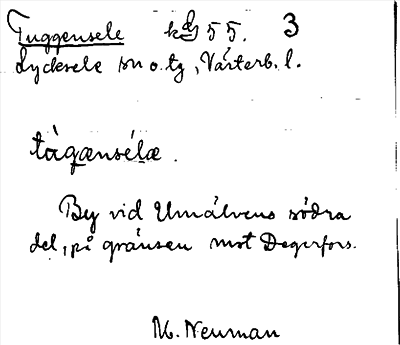 Tuggensele kd 55. 3
Lycksele sn o. tg, Västerb. l.
tàgænsélæ.
By vid Umälvens södra
del, på gränsen mot Degerfors.
M. Neuman